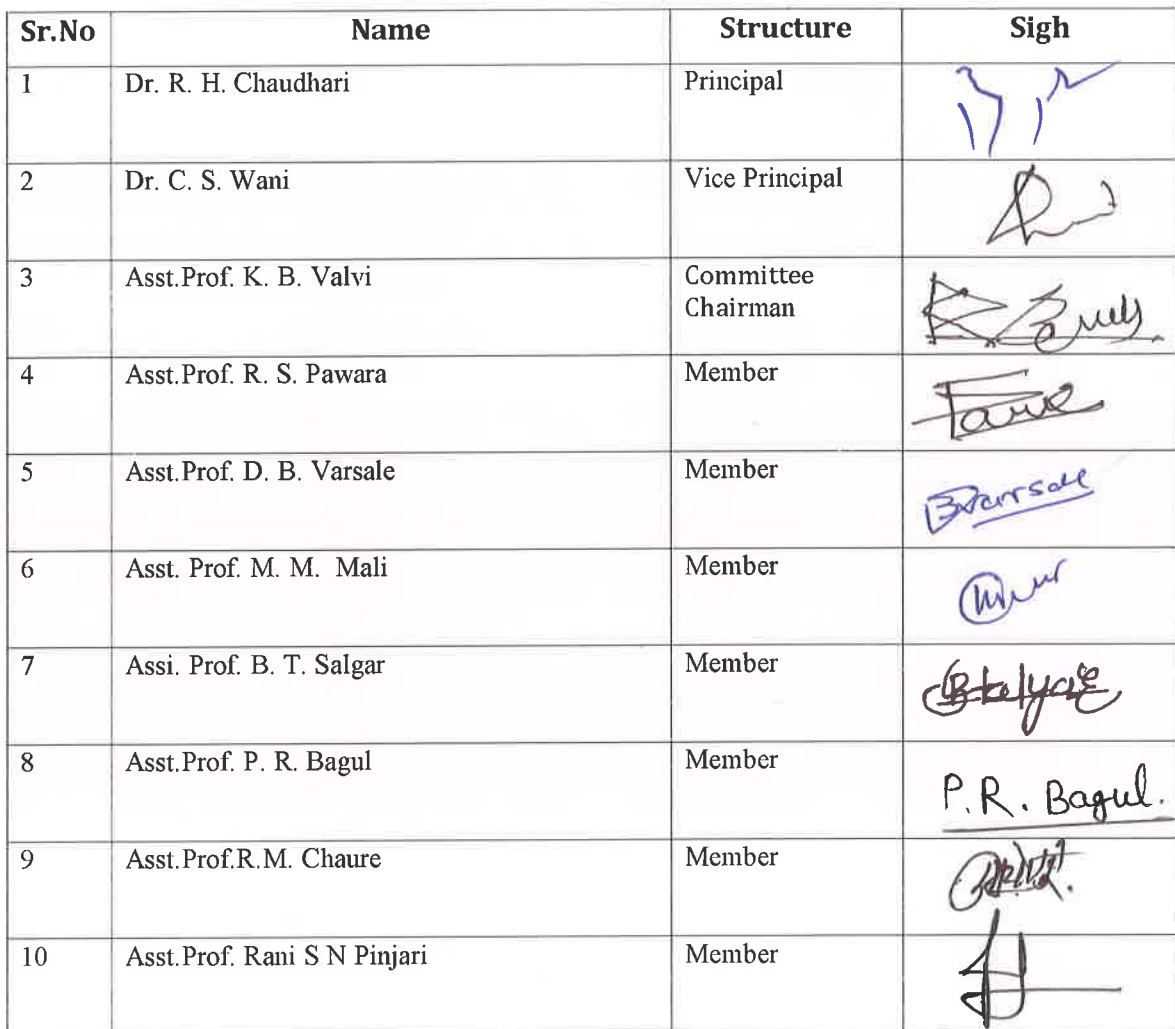 Sr.No Name Structure Sigh
1 Dr. R. H. Chaudhari Principal
2 Dr. C. S. Wani Vice Principal
3 Asst.Prof. K. B. Valvi Committee
Chairman
4 Asst.Prof. R. S. Pawara Member
5 Asst.Prof. D. B. Varsale Member
6 Asst. Prof. M. M. Mali Member
7 Assi. Prof. B. T. Salgar Member
8 Asst.Prof. P. R. Bagul Member P.R. Bagul.
9 Asst.Prof.R.M. Chaure Member
10 Asst.Prof. Rani S N Pinjari Member